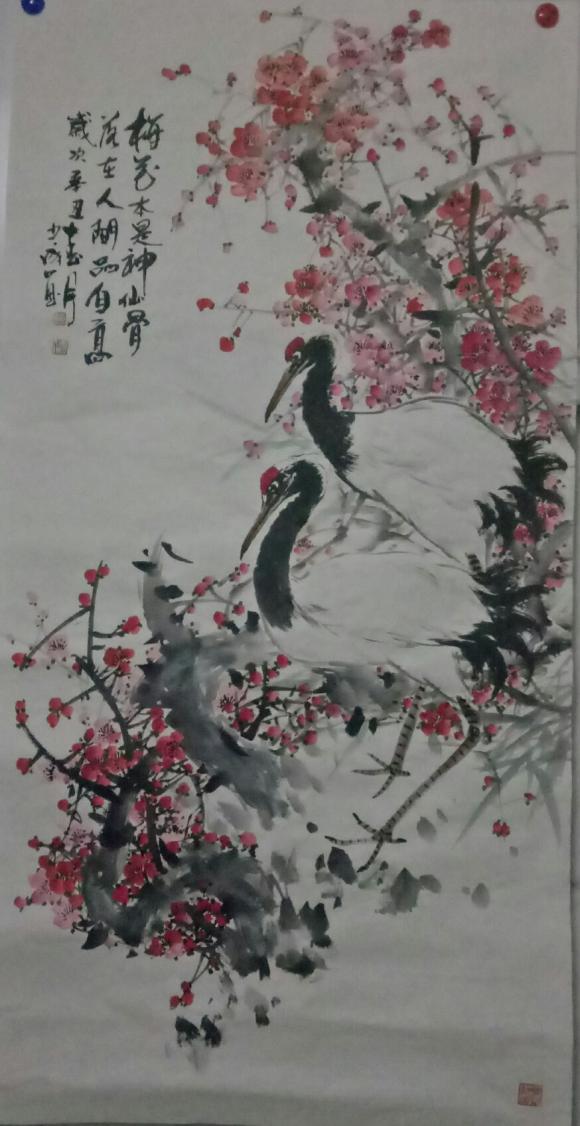 梅花本是神仙骨
落在人間品自高
歲次辛丑